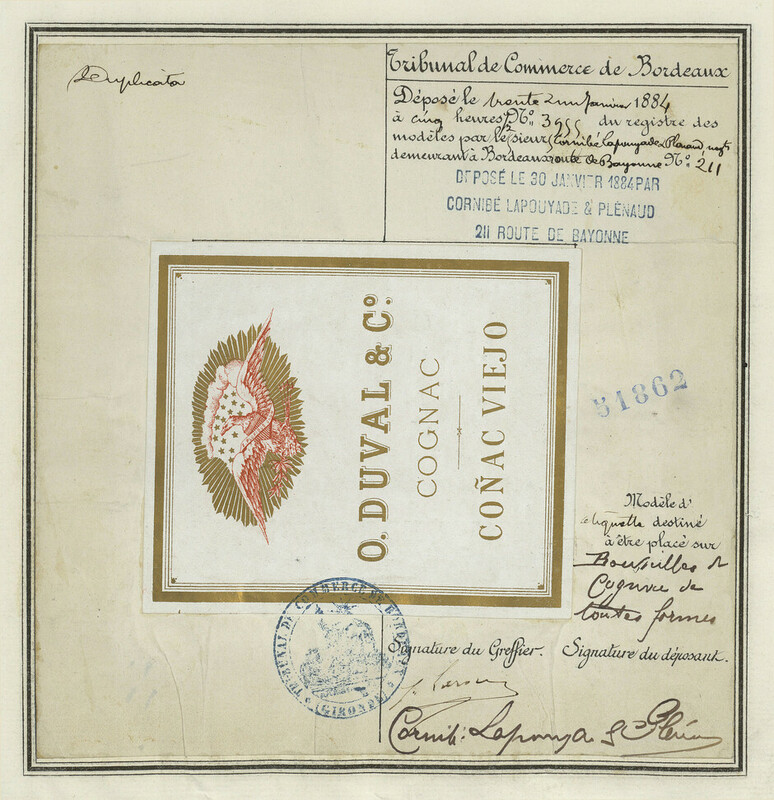 Duplicata
Tribunal de Commerce de Bordeaux
Déposé le trente un Janvier 1884
à cinq heures Nº 3955 du registre des
modèles par les sieurs Cornibé Lapouyade & Plénaud, negts
demeurant à Bordeaux route de Bayonne Nº 211
DEPOSÉ LE 30 JANVIER 1884 PAR
CORNIBÉ LAPOUYADE & PLÉNAUD
211 ROUTE DE BAYONNE
O. DUVAL & Cº.
COGNAC
COÑAC VIEJO
51862
Modèle d'
etiquette destiné
à être placé sur
Bouteilles de
Cognac de
toutes formes
TRIBUNAL DE COMMERCE DE BORDEAUX
(GIRONDE)
Signature du Greffier. Signature du déposant.
Cornibé Lapouyade & Plénaud